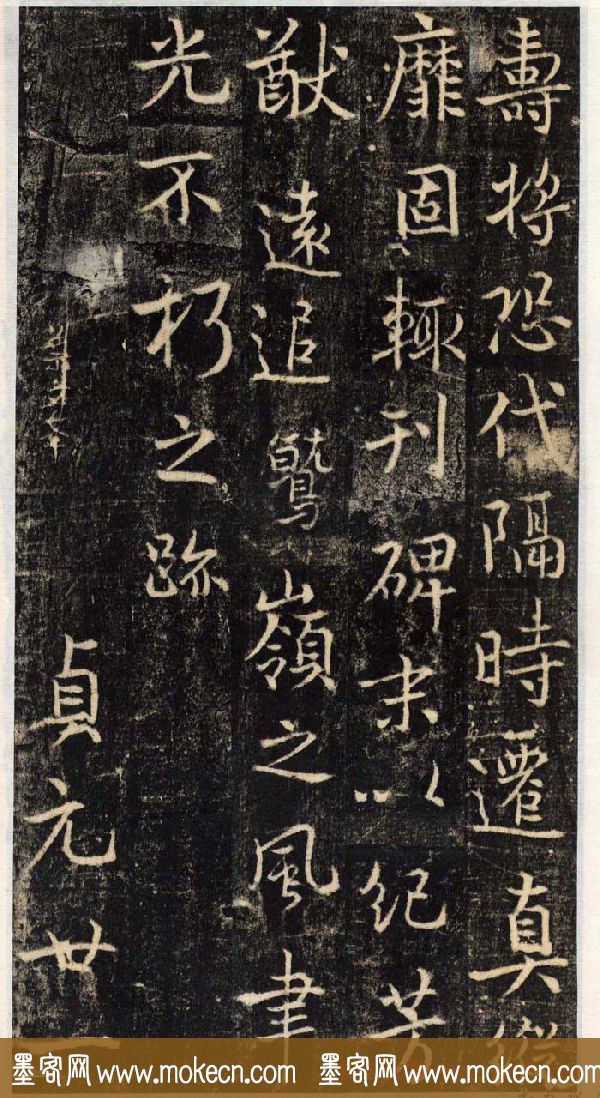 壽将恐代隔時遷真
靡固輙刊碑末以紀芳
猷遠追鷲嶺之風聿
光不朽之跡
貞元廿一
墨客网 www.mokecn.com 墨客网 www.mokecn.com